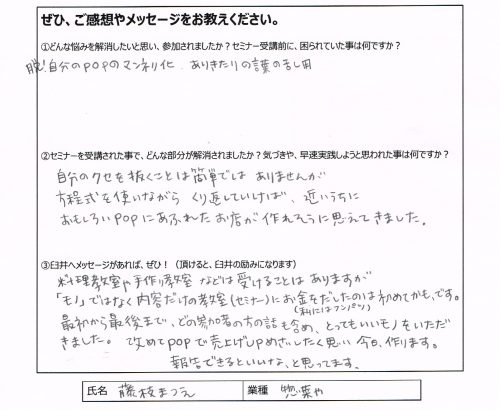 ぜひ、ご感想やメッセージをお教えください。
①どんな悩みを解消したいと思い、参加されましたか?セミナー受講前に、困られていた事は何ですか?
脱!自分のPOPのマンネリ化、ありきたりの言葉の
②セミナーを受講された事で、どんな部分が解消されましたか?気づきや、早速実践しようと思われた事は何ですか?
自分のクセを抜くことは簡単では ありませんが
方程式を使いながら くり返していけば、近いうちに
おもしろいPOPにあふれたお店が 作れそうに思えてきました。
③臼井へメッセージがあれば、ぜひ! (頂けると、臼井の励みになります)
料理教室や手作り教室 などは受けることは ありますが
「モノ」ではなく内容だけの教室(セミナー)にお金をだしたのは初めてかも、です。
(私にはコンパソ)
最初から最後まで、どの参加者の方の話も含め、とってもいいモノをいただ
きました。 改めてPOPで売上げUPめざしたく思い 今日、作ります。
報告できるといいな、と思ってます。
氏名 藤枝まつえ 業種 惣菜や